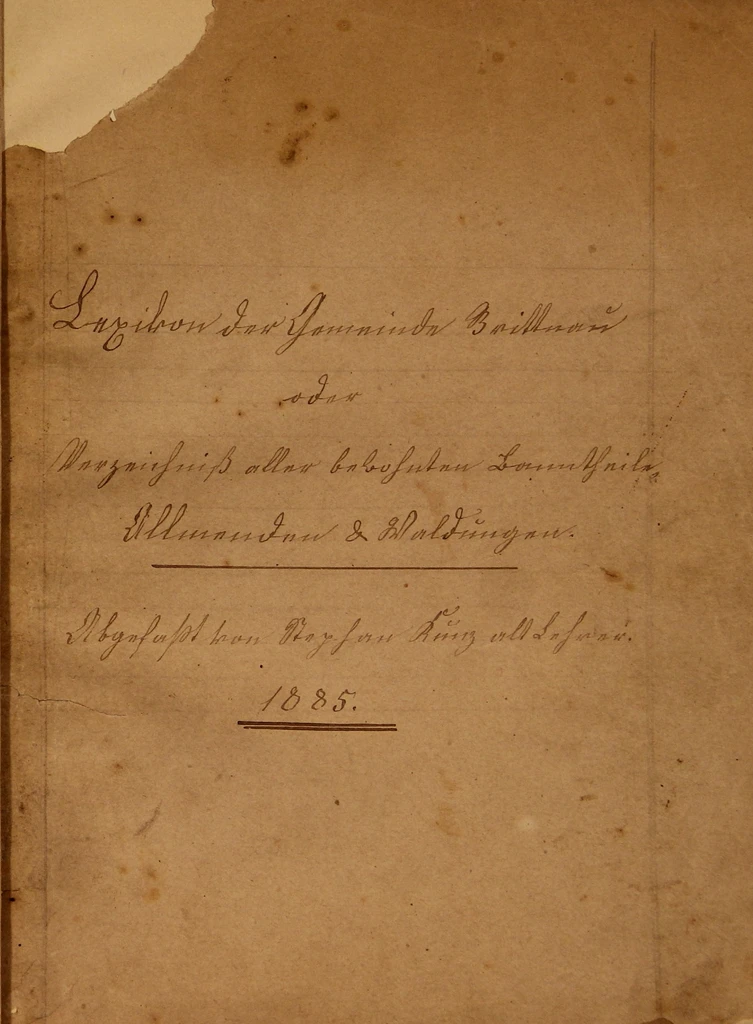 Lexikon der Gemeinde Brittnau
oder
Verzeichniß aller bewohnten Banntheile,
Allmenden & Waldungen.
Abgefaßt von Stephan Kunz alt Lehrer.
1885.